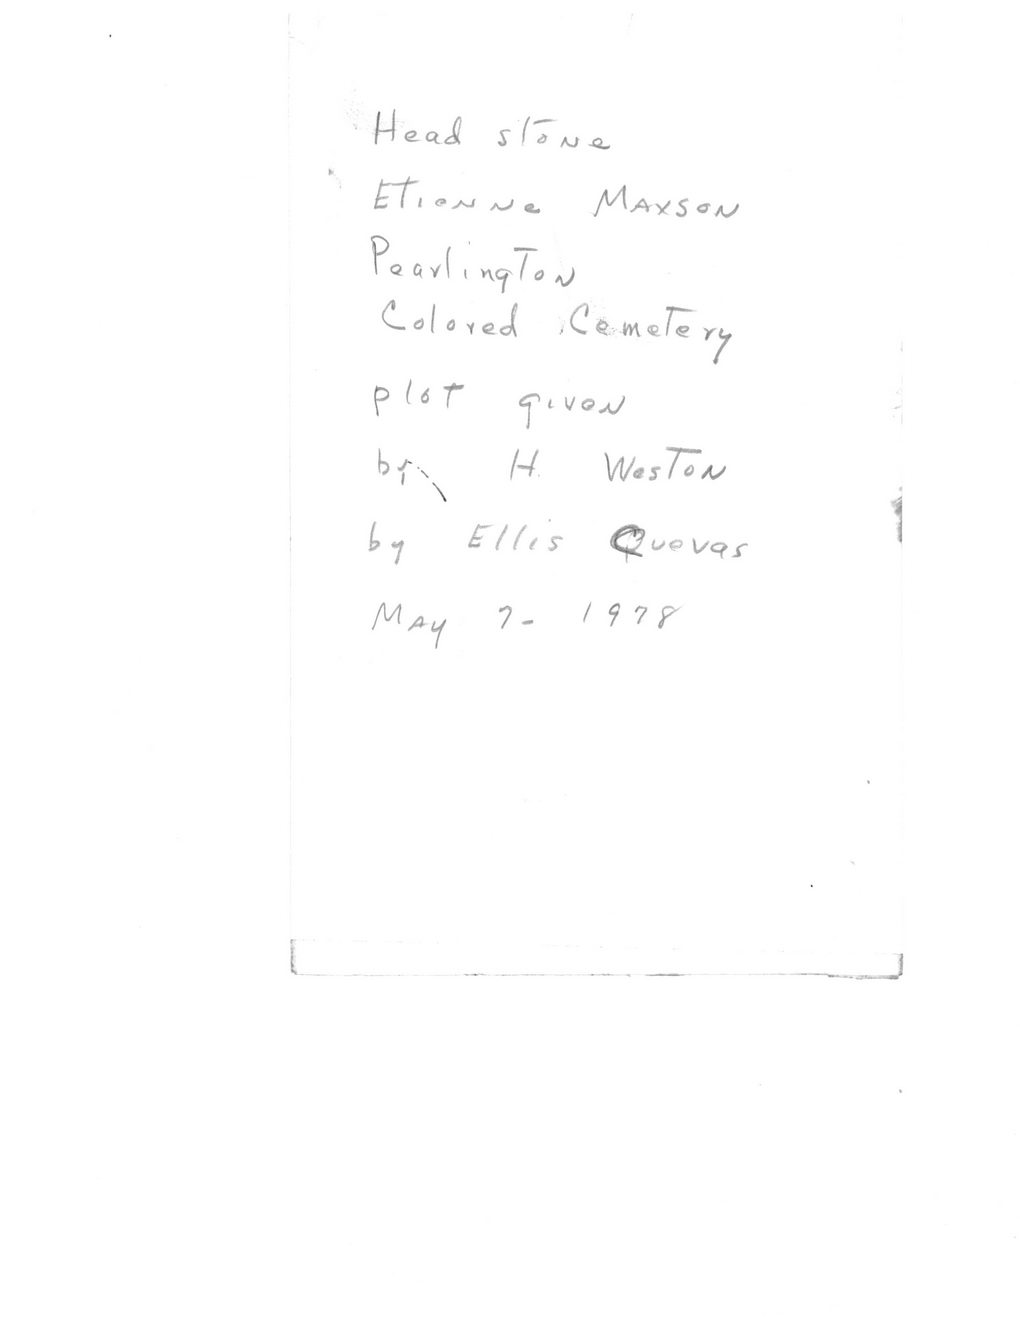 Head stone
Etienne Maxson
Pearlington
Colored Cemetery
plot given
by H. Weston
by Ellis Cuevas
May 7- 1978